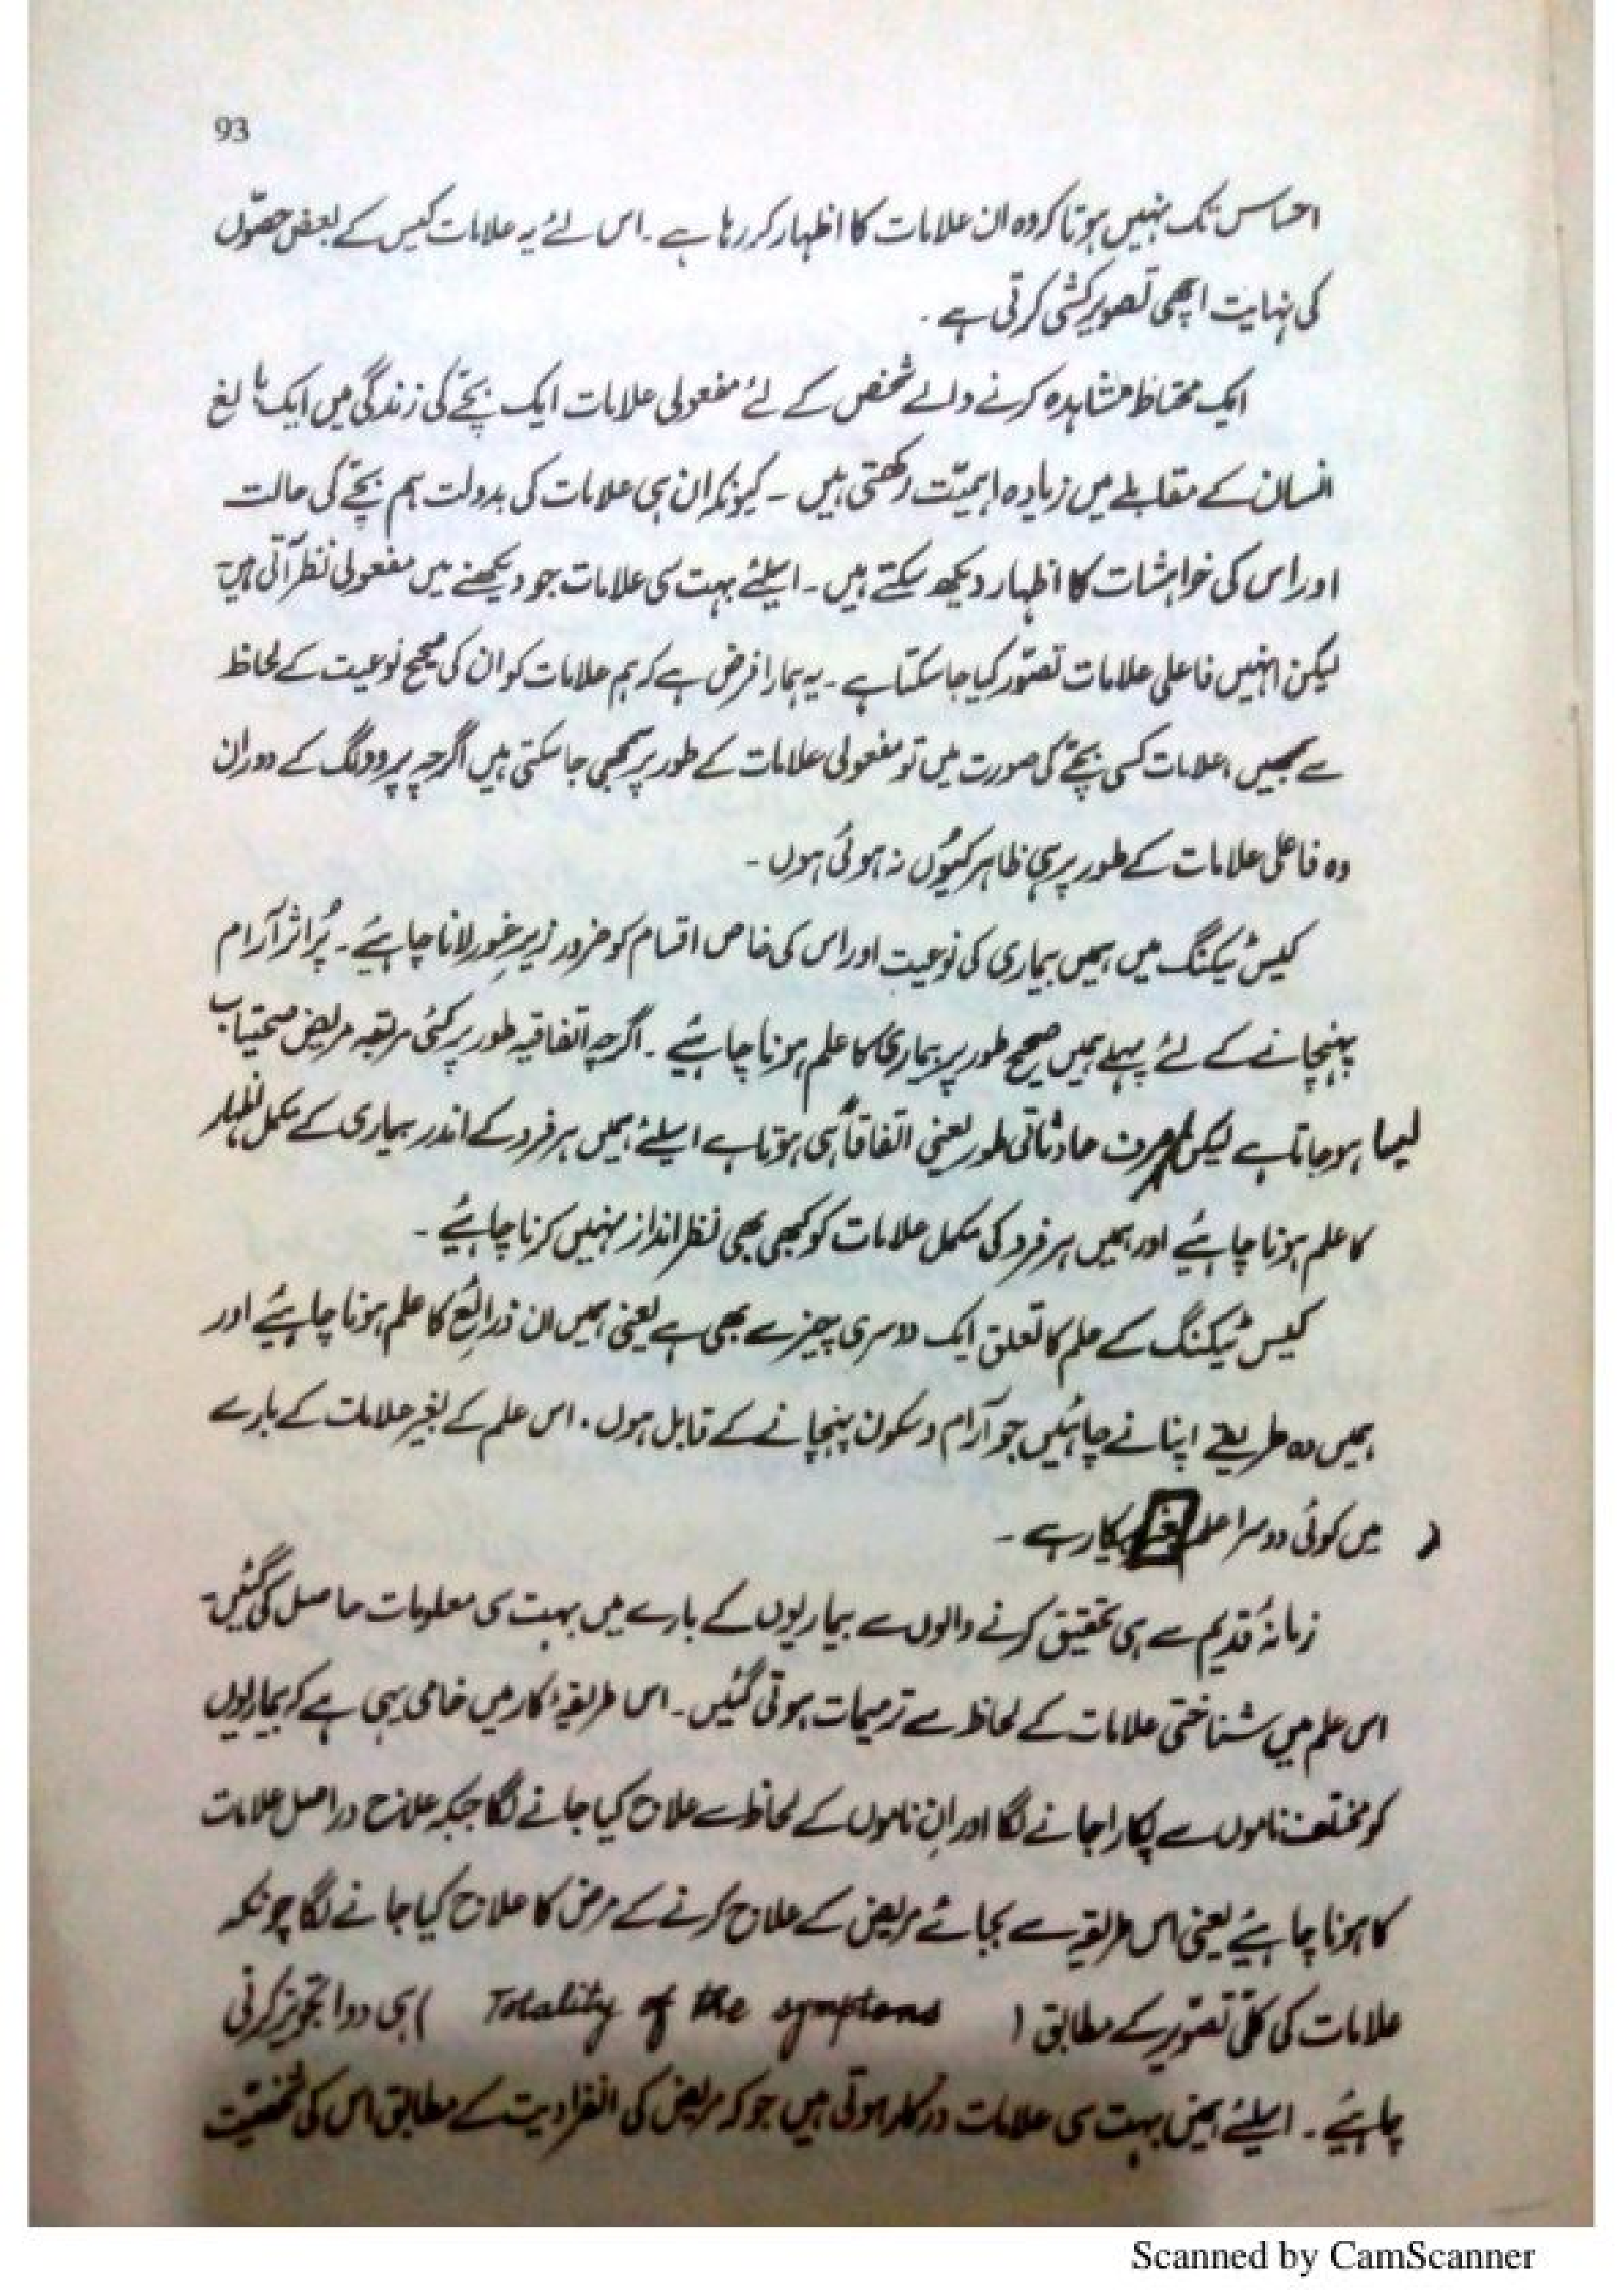 93
احساس تک نہیں ہوتا کہ وہ ان علامات کا اظہار کر رہا ہے۔ اس لئے یہ علامات کیس کے بعض حصّوں
کی نہایت اچھی تصویر کشی کرتی ہے۔
ایک محتاط مشاہدہ کرنے والے شخص کے لئے مفعولی علامات ایک بچّے کی زندگی میں ایک بالغ
انسان کے مقابلے میں زیادہ اہمیّت رکھتی ہیں ۔ کیونکہ ان ہی علامات کی بدولت ہم بچّے کی حالت
اور اس کی خواہشات کا اظہار دیکھ سکتے ہیں ۔ اسلئے بہت سی علامات جو دیکھنے میں مفعولی نظر آتی ہیں
لیکن انہیں فاعلی علامات تصّور کیا جا سکتا ہے ۔ یہ ہمارا فرض ہے کہ ہم علامات کو ان کی صحیح نوعیت کے لحاظ
سے سمجھیں، علامات کسی بچّے کی صورت میں تو مفعولی علامات کے طور پر سمجھی جا سکتی ہیں اگرچہ پروونگ کے دوران
وہ فاعلی علامات کے طور پر ہی ظاہر کیوُں نہ ہوئی ہوں ۔
کیس ٹیکنگ میں ہمیں بیماری کی نوعیت اور اس کی خاص اقسام کو ضرور زیرِ غور لانا چاہیئے ۔ پُر اثر آرام
پہنچانے کے لئے پہلے ہمیں صحیح طور پر بیماری کا علم ہونا چاہیئے ۔ اگرچہ اتفاقیہ طور پر کئی مرتبہ مریض صحتیاب
ہو جاتا ہے لیکن صرف حادثاتی طور یعنی اتفاقاً ہی ہوتا ہے اسلئے ہمیں ہر فرد کے اندر بیماری کے مکمل اظہار
کا علم ہونا چاہیئے اور ہمیں ہر فرد کی مکمل علامات کو کبھی بھی نظر انداز نہیں کرنا چاہیئے ۔
کیس ٹیکنگ کے علم کا تعلق ایک دوسری چیز سے بھی ہے یعنی ہمیں ان ذرائع کا علم ہونا چاہیئے اور
ہمیں وہ طریقے اپنانے چاہئیں جو آرام و سکون پہنچانے کے قابل ہوں ۔ اس علم کے بغیر علامات کے بارے
میں کوئی دوسرا علم بیکار ہے ۔
زمانۂ قدیم سے ہی تحقیق کرنے والوں سے بیماریوں کے بارے میں بہت سی معلومات حاصل کی گئیں۔
اس علم میں شناختی علامات کے لحاظ سے ترمیمات ہوتی گئیں ۔ اس طریقۂ کار میں خامی یہی ہے کہ بیماریوں
کو مختلف ناموں سے پکارا جانے لگا اور اِن ناموں کے لحاظ سے علاج کیا جانے لگا جبکہ علاج دراصل علامات
کا ہونا چاہیئے یعنی اس طریقہ سے بجائے مریض کے علاج کرنے کے مرض کا علاج کیا جانے لگا چونکہ
علامات کی کلّی تصّور کے مطابق ( Totality of the symptoms ) ہی دوا تجویز کرنی
چاہیئے ۔ اسلئے ہمیں بہت سی علامات درکار ہوتی ہیں جو کہ مریض کی انفرادیت کے مطابق اس کی شخصیّت
Scanned by CamScanner